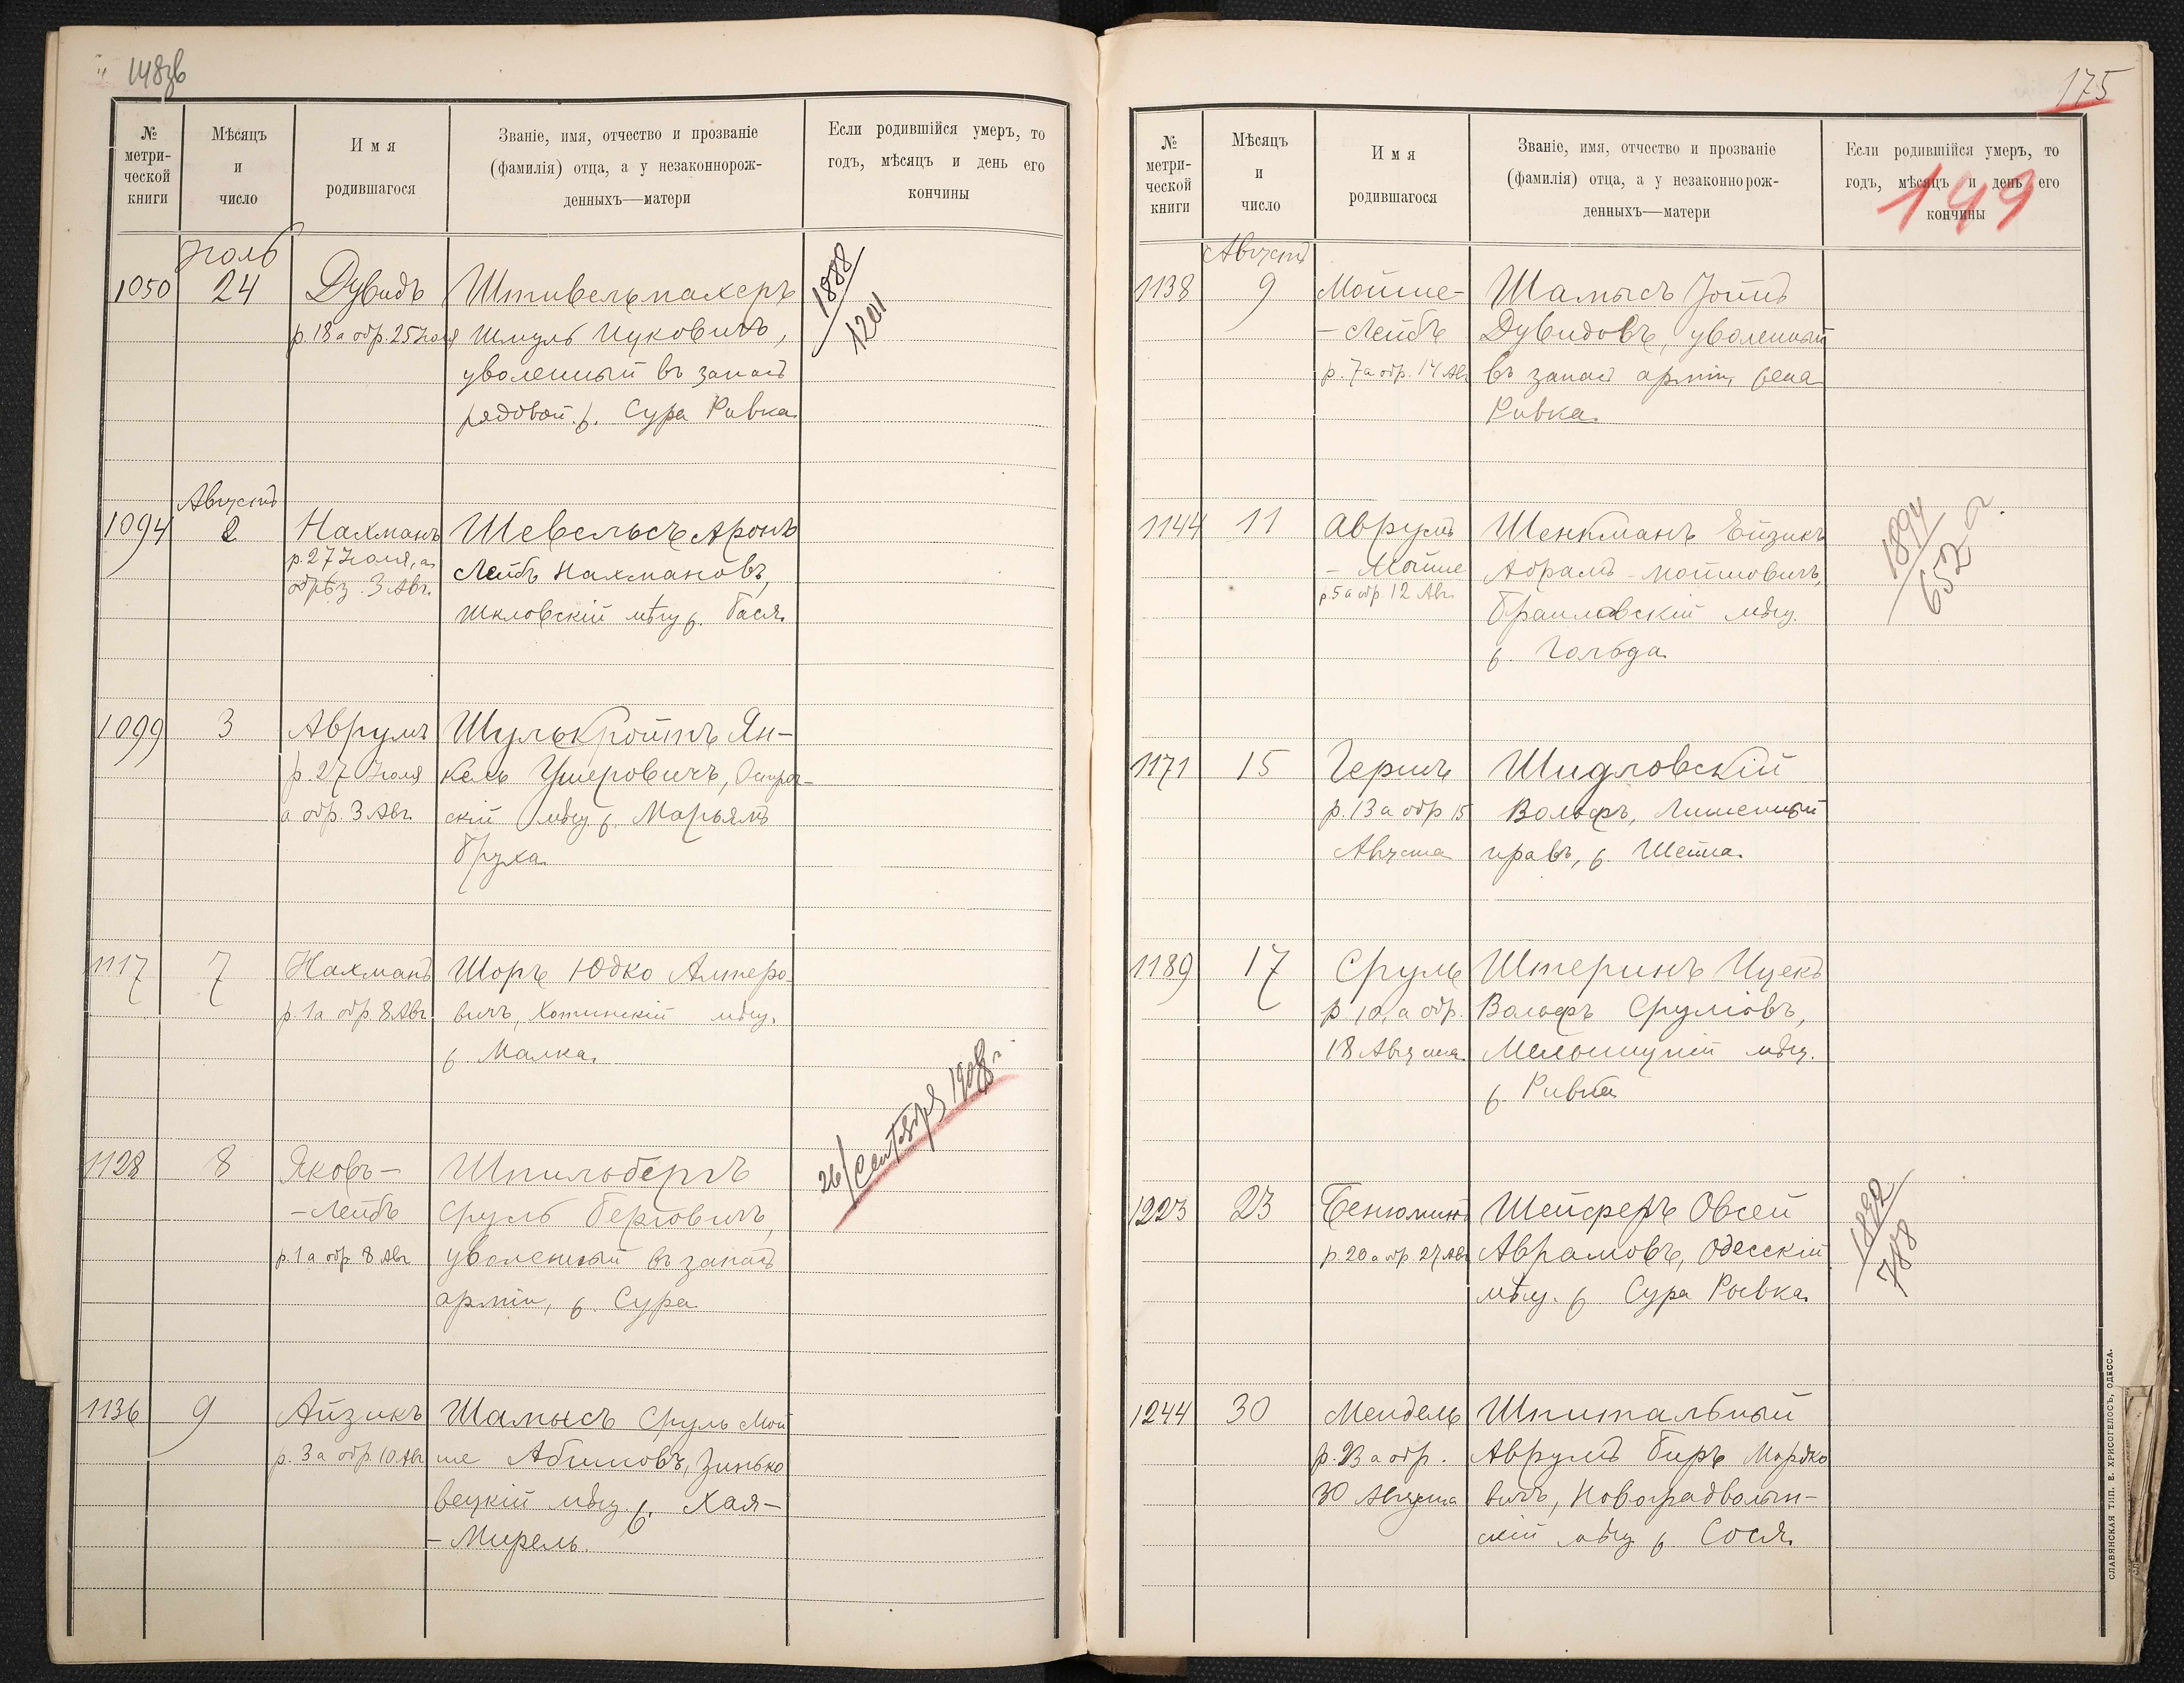 148зв
№ метрической книги
Мѣсяцъ и число
Имя родившагося
Званіе, имя, отчество и прозваніе
(фамилія) отца, а у незаконнорож-
денныхъ—матери
Если родившійся умеръ, то
годъ, мѣсяцъ и день его
кончины
Іюль
1050 24 Дувидъ Штивельмахеръ
р. 18 а обр. 25 Іюля Шмуль Ицковичъ,
уволенный въ запасъ
рядовой. ж. Сура Ривка
1888
1201
Августъ
1094 2 Нахманъ Шевельсъ Аронъ
р. 27 Іюля, а Лейбъ Нахмановъ,
обрѣз. 3 Авг. Шкловскій мѣщ ж. Бася.
1099 3 Аврумъ Шулькройтъ Ян-
р. 27 Іюля кель Ушеровичъ, Острог-
а обр. 3 Авг. скій мѣщ. ж. Марьямъ
Бруха
1117 7 Нахманъ Шоръ Юдко Алтеро-
р. 1 а обр. 8 Авг. вичъ, Хотинскій мѣщ.
ж. Малка.
1128 8 Яковъ- Шпильбергъ
-Лейбъ Сруль Берковичъ,
р. 1 а обр. 8 Авг. уволенный въ запасъ
арміи, ж. Сура
26/Сентября 1908 г.
1136 9 Айзикъ Шамысъ Сруль Мой
р. 3 а обр. 10 Авг. ше Абимовъ, Зинько
вецкій мѣщ. ж. Хая-
-Мирель.
175
№ метрической книги
Мѣсяцъ и число
Имя родившагося
Званіе, имя, отчество и прозваніе
(фамилія) отца, а у незаконнорож-
денныхъ—матери
Если родившійся умеръ, то
годъ, мѣсяцъ и день его
кончины
149
Августъ
1138 9 Мойше- Шамысъ
-Лейбъ Дувидовъ, уволенный
р. 7 а обр. 14 Авг. въ запасъ арміи, жена
Ривка.
1144 11 Аврумъ Шенкманъ Ейзикъ
- Мойше Абрамъ-Мойшовичъ,
р. 5 а обр. 12 Авг. Браиловскій мѣщ.
ж. Гольда
1894 г.
652
1171 15 Гершъ Шидловскій
р. 13 а обр 15 Вольфъ, лишенный
Августа правъ, ж. Шейна.
1189 17 Сруль Штеринъ Ицекъ
р. 10, а обр. Вольфъ Срулiовъ,
18 Августа. мѣщ.
ж. Ривка
1223 23 Бенюминъ Шейферъ Овсей
р. 20 а обр. 27 Авг Аврамовъ, Одесскій
мѣщ. ж Сура Ривка
1892
788
1244 30 Мендель Шпитальный
р. 23 а обр. Аврумъ Беръ Мордко
30 Августа вичъ, Новоградволын-
скій мѣщ ж. Сося.
СЛАВЯНСКАЯ ТИП. В. ХРИСОГЕЛОСЪ, ОДЕССА.